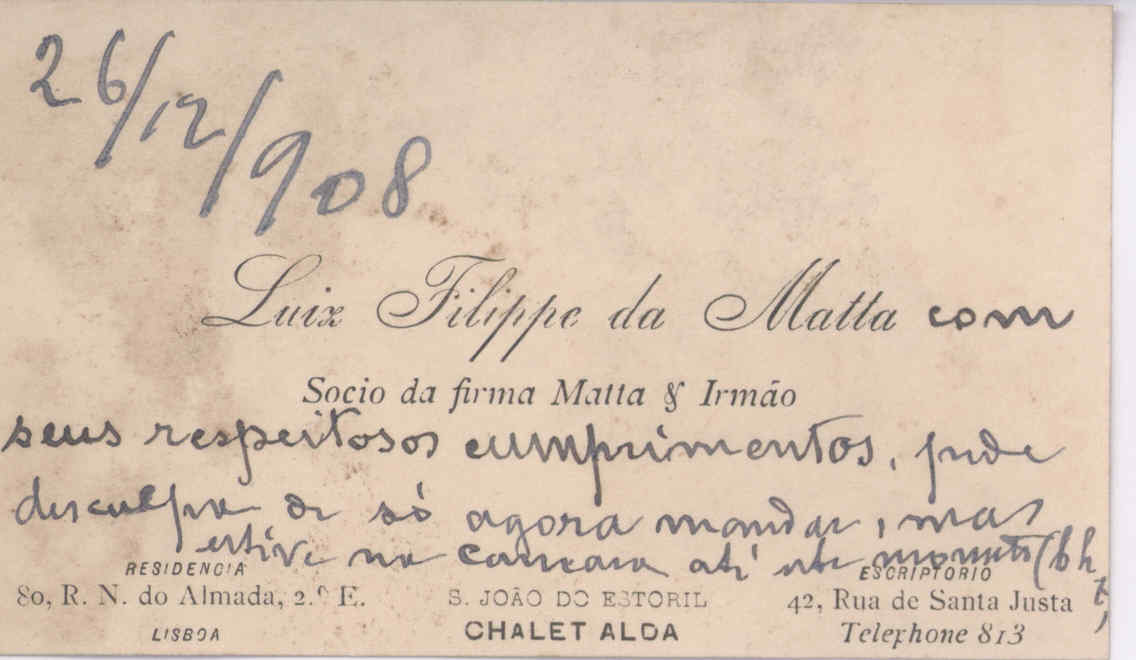 26/12/908
Luiz Filippe da Matta com
Socio da firma Matta & Irmão
seus respeitosos cumprimentos, pede
desculpa de só agora mandar, mas
estive na camara até este momento (6 h
RESIDENCIA
ESCRIPTORIO
80, R. N. do Almada, 2.º E.
S. JOÃO DO ESTORIL
42, Rua de Santa Justa
LISBOA
CHALET ALDA
Telephone 813